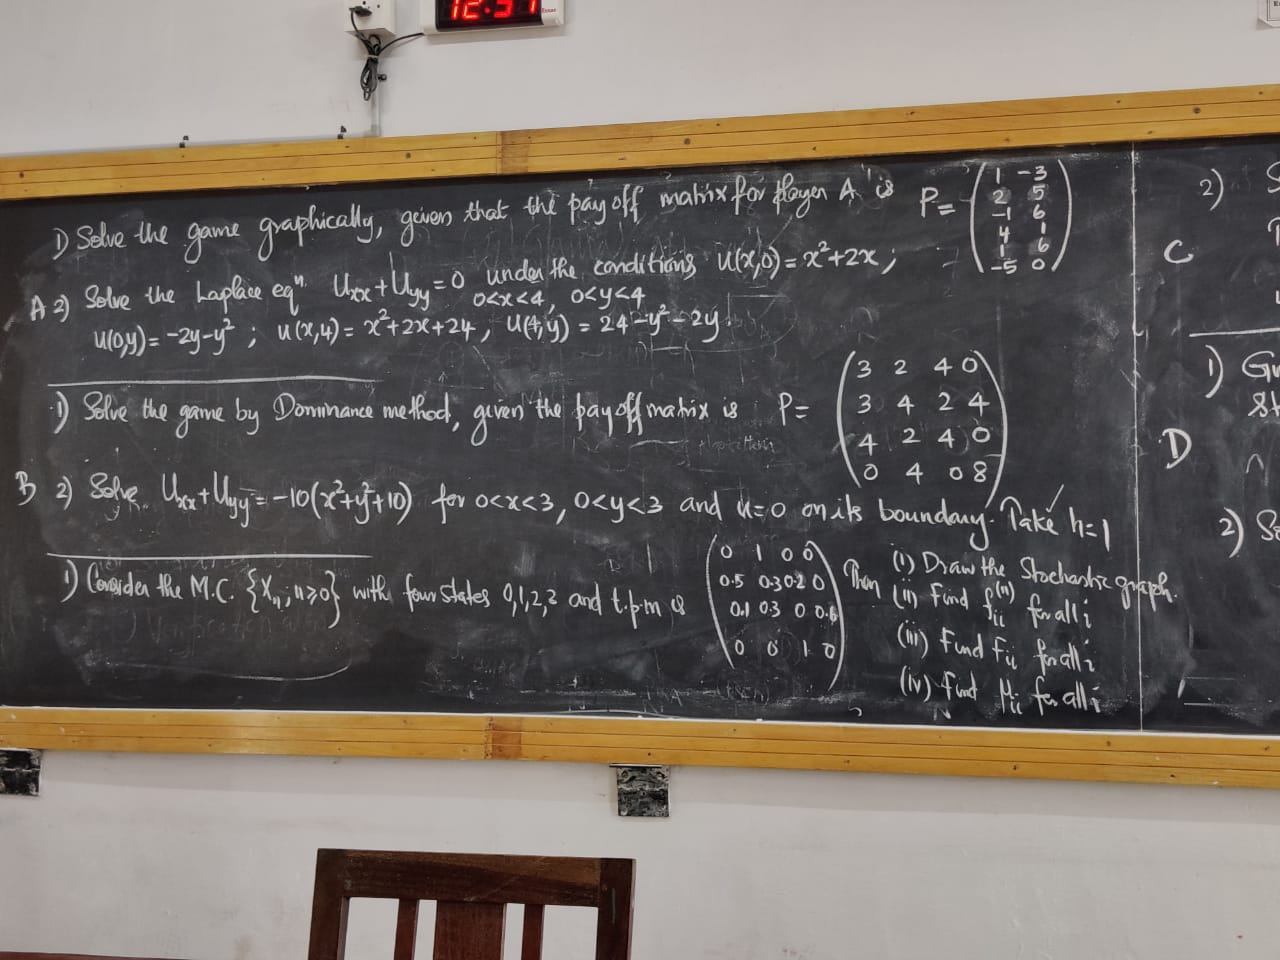 12:57
1) Solve the game graphically, given that the pay off matrix for player 'A' is P= (1 -3
2 5
-1 6
4 1
1 6
-5 0)
A 2) Solve the Laplace eqⁿ. Uxx+Uyy=0 under the conditions u(x,0)=x²+2x;
0<x<4, 0<y<4
u(0,y)=-2y-y²; u(x,4)=x²+2x+24, u(4,y)=24-y²-2y.
1) Solve the game by Dominance method, given the payoff matrix is P= (3 2 4 0
3 4 2 4
4 2 4 0
0 4 0 8)
B 2) Solve Uxx+Uyy=-10(x²+y²+10) for 0<x<3, 0<y<3 and u=0 on its boundary. Take h=1
1) Consider the M.C. {Xn, n≥0} with four states 0,1,2,3 and t.p.m is (0 1 0 0
0.5 0.3 0.2 0
0.1 0.3 0 0.6
0 0 1 0) Then (i) Draw the Stochastic graph.
(ii) Find fii⁽ⁿ⁾ for all i
(iii) Find Fii for all i
(iv) Find μii for all i
2) S
C
1) G
D
2) So